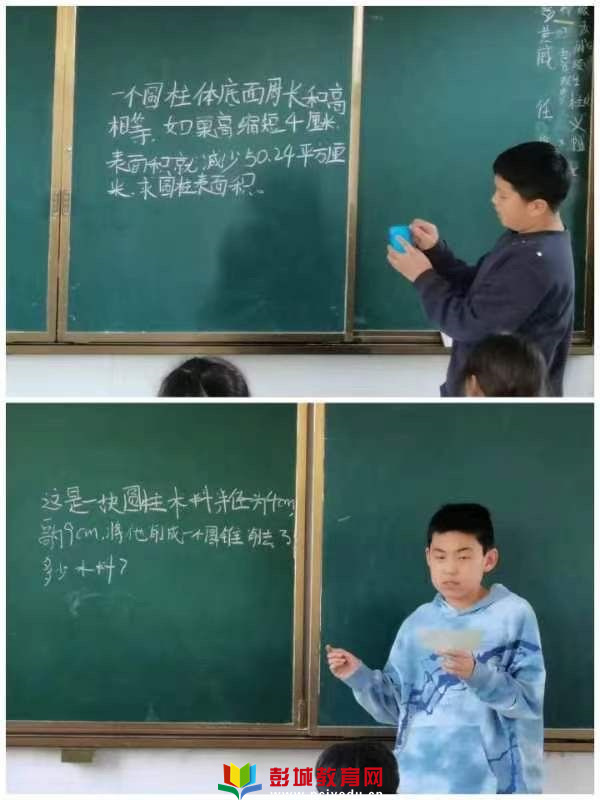 一个圆柱体底面周长和高
相等,如果高缩短4厘米,
表面积就减少50.24平方厘
米,求圆柱表面积。
这是一块圆柱木料半径为4cm
高9cm,将他削成一个圆锥削去了
多少木料?
彭城教育网